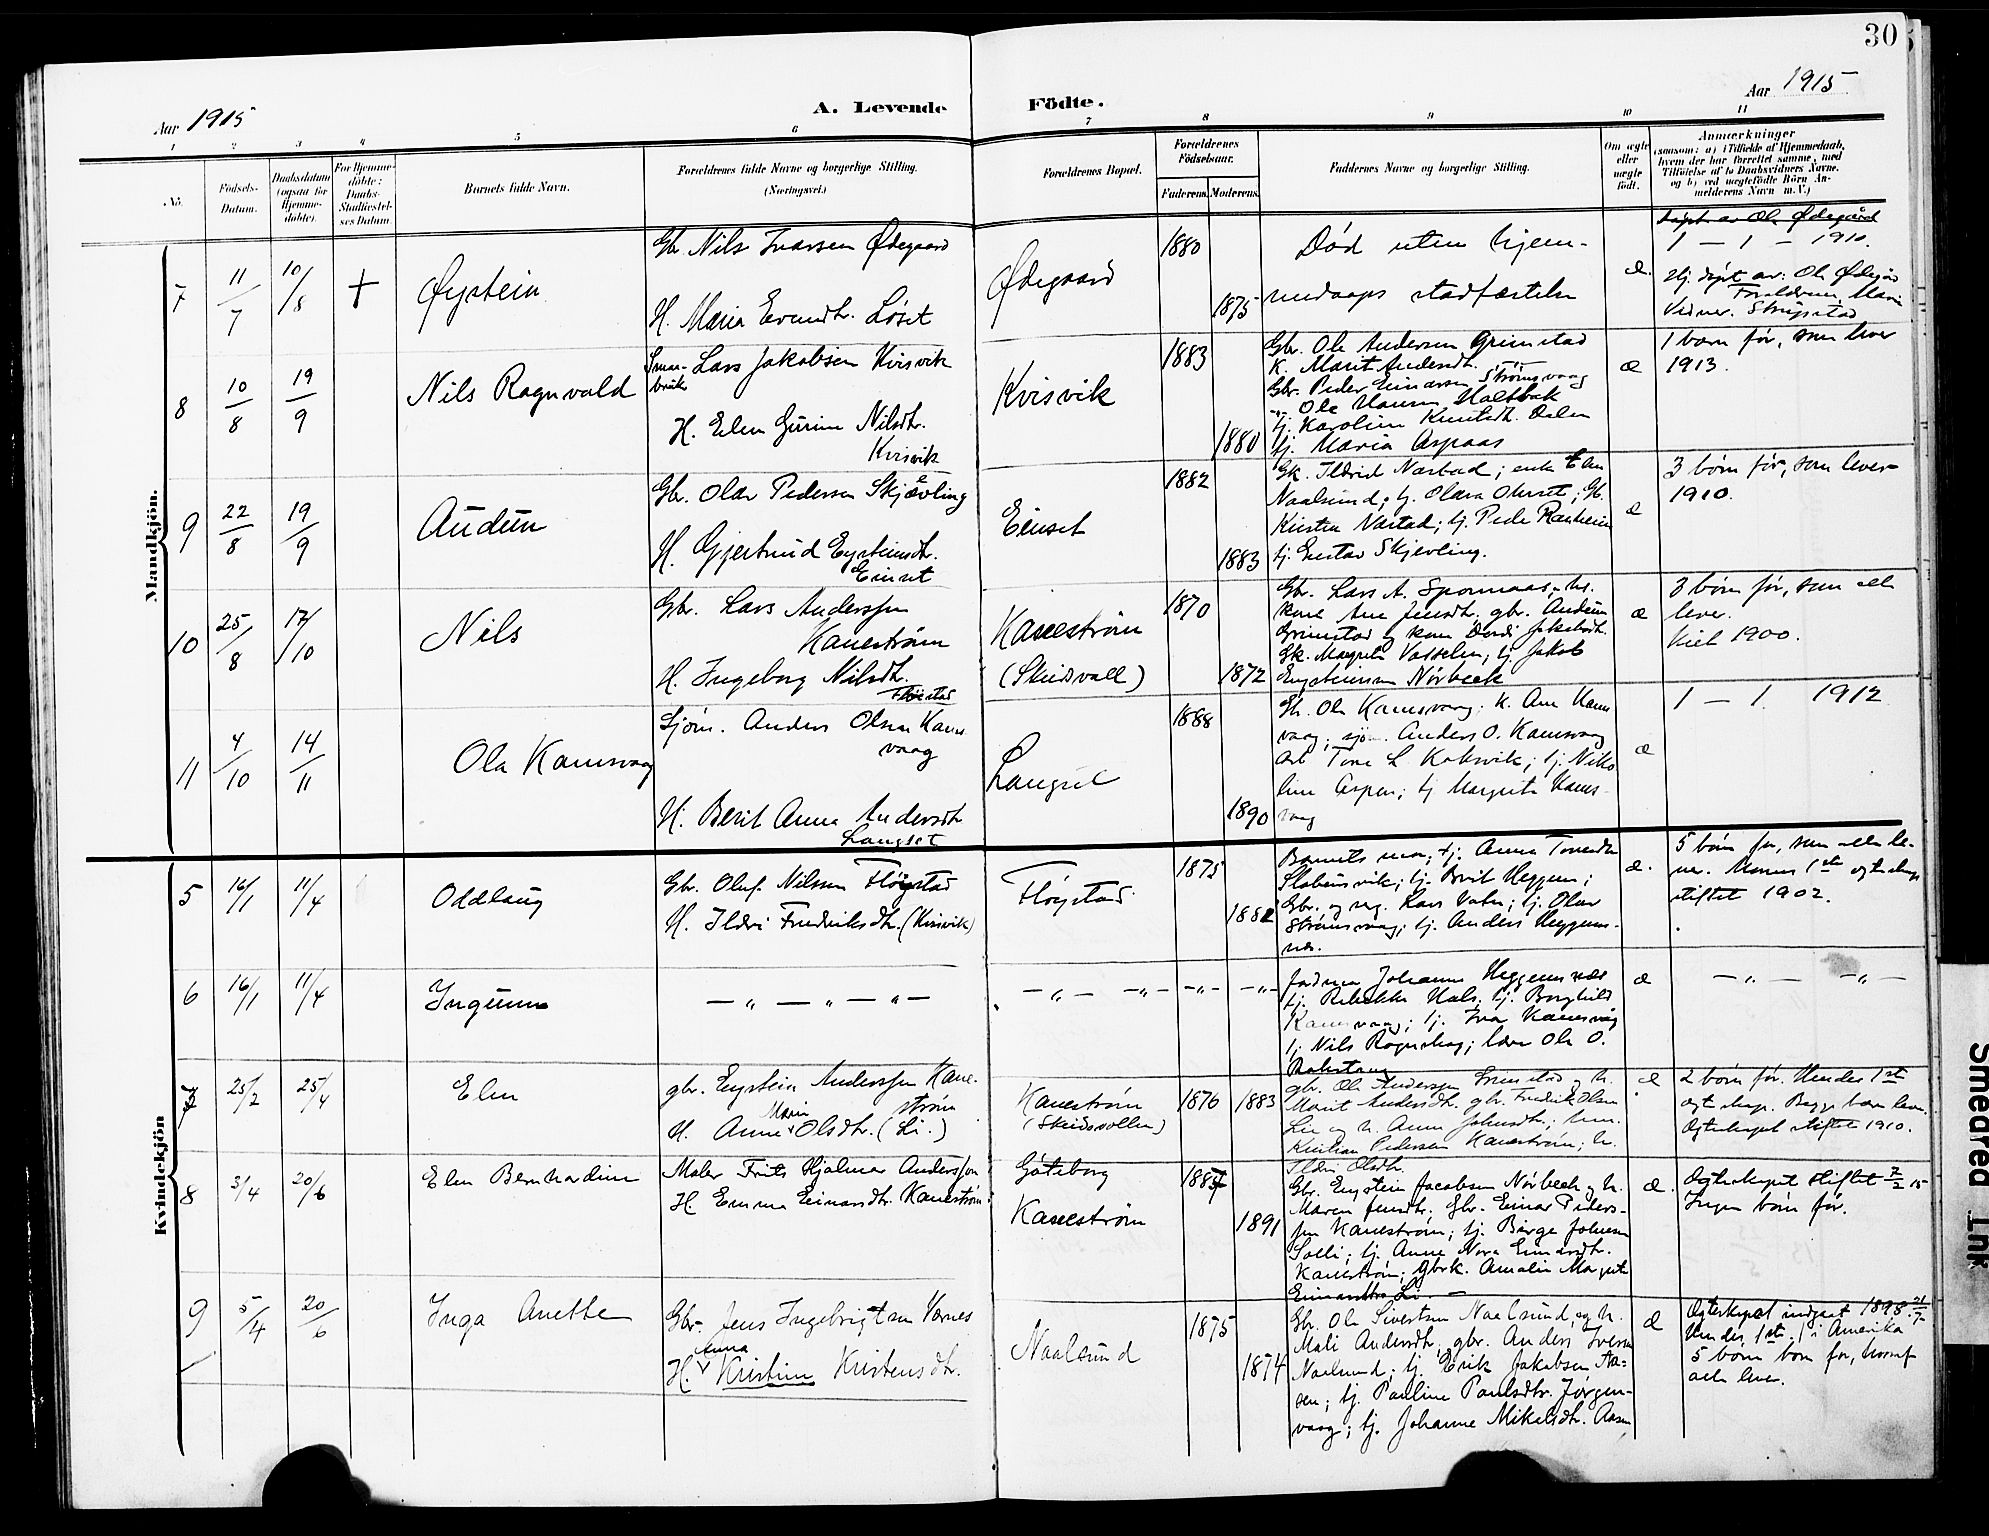 30
Aar 1915
A. Levende Födte.
Aar 1915
1 2 3 4 5 6 7 8 9 10 11
No. Födsels-Datum. Daabsdatum (ogsaa for Hjemme-döbte). For Hjemme-döbte: Daabs-Stadfæstel-ses Datum Barnets fulde Navn. Forældrenes fulde Navne og borgerlige Stilling. (Næringsvei.) Forældrenes Bopæl. Forældrenes Födselsaar. Faderens. Moderens. Faddernes Navne og borgerlig Stilling. Om ægte eller uægte födt. Anmærkninger (saasom: a) i Tilfælde af Hjemmedaab, hvem der har forrettet samme, med Tilföielse af to Daabsvidners Navne, og b) ved uægtefödte Börn An-melderens Navn m. V.)
Mandkjön.
7 11/7 10/8 + Øystein
Gbr. Nils Ivarsen Ødegaard
H. Maria Evendtr. Løset
Ødegaard 1880 1875
Død uten hjem-
medaaps stadfæstelse
æ.
døpt av Ole Ødegård
1 — 1 — 1910.
Hj. døpt av: Ole Ødegård
Forældrene, Marie
Vidner. Strupstad
8 10/8 19/9 Nils Ragnvald
Smaa-bruker Lars Jakobsen Kvisvik
H. Elen Gurine Nilsdtr.
Kvisvik
Kvisvik 1883 1880
Gbr. Ole Andersen Grimstad
K. Marit Andersdt. -"-
Gbr. Peder Einarsen Strømsvaag
-"- Ole Hansen Holtbak
tj. Karoline Knutsdt. Dalen
tj. Maria Aspaas
æ
1 barn før, som lever
1913.
9 22/8 19/9 Audun
Gbr. Olav Pedersen Skjævling
H. Gjertrud Eysteinsdtr.
Einset
Einset 1882 1883
Gk. Ildrid Nastad; enke Elen
Naalsund; tj. Olava Oterset; Gk.
Kirsten Nastad; tj. Peder Ranheim
tj. Gustav Skjevling.
æ
3 børn før, som lever
1910.
10 25/8 17/10 Nils
Gbr. Lars Anderssen
Kanestrøm
H. Ingeborg Nilsdtr.
Fløistad
Kanestrøm
(Skeidsvoll)
1870 1872
Gbr. Lars A. Spormaas, hs.
kone Ane Jensdt., gbr. Audun
Grimstad og kone Dordi Jakobsdt.
Gk. Margrete Vasselen, tj. Jakob
Eysteinsen Nørbeck
æ
3 børn før, som alle
lever.
Viet 1900.
11 4/10 14/11 Ola Kamsvaag
Sjøm. Anders Olsen Kams-
vaag
H. Berit Anna Andersdtr.
Langset
Langset 1888 1890
Gb. Ole Kamsvaag, k. Ane Kams
vaag, sjøm. Anders O. Kamsvaag
arb Tore L Kaksvik; tj. Niko-
line Aspen; tj Margrete Kams-
vaag
æ
1 — 1. 1912
Kvindekjön
5 16/1 11/4 Oddlaug
Gbr. Oluf Nilssen Fløystad
H. Ildri Fredriksdtr. (Kvisvik)
Fløystad 1875 1882
Barnets mor; tj. Anna Torendtr.
Stabensvik; tj. Brit Heggem;
Gbr. og sag. Lars Vatn; tj. Olav
Strømsvaag; tj. Anders Heggems-
næs.
æ.
5 børn før, som alle le-
ver. Mannens 1ste egteskap
stiftet 1902.
6 16/1 11/4 Ingunn
— „ — „ — „ —
— „ — — „ — — „ — — „ —
Jordmor Johanne Heggemsnæs
tj. Rebekka Hals, tj. Borghild
Kamsvaag; tj. Ivar Kamsvåg
tj. Nils Rognskog; lærer Ole O.
Rakstang
æ
— „ — — „ —
7 25/2 25/4 Elen
gbr. Eystein Anderssen Kane-
strøm
H. Anne Marie Olsdtr. (Li.)
Kanestrøm
(Skeidsvollen)
1876 1883
gbr. Ole Anderssen Grimstad og h.
Marit Andersdtr, gbr. Fredrik Olsen
Lie og h. Anna Johnsdtr;
Kristian Pedersen Kanestrøm, h.
Ildri Olsdtr.
æ
2 børn før. Hendes 1ste
egteskap. Begge børn lever.
Egteskapet stiftet 1910.
8 3/4 20/6 Elen Bernhardine
Maler Frits Hjalmar Andersson
H. Emma Einarsdtr. Kanestrøm
Göteborg
Kanestrøm
1887 1891
Gbr. Eystein Jacobsen Nørbech og h.
Maren Jensdtr. Gbr. Einar Peders-
sen Kanestrøm; tj. Børge Johnsen
Solli; tj. Anne Nora Einarsdtr.
Kanestrøm; Gbrk. Amalie Margrete
Einarsdtr Li. —
æ.
Egteskapet stiftet 7/2 15
Ingen børn før.
9 5/4 20/6 Inga Anette
Gbr. Jens Ingebrigtsen Værnes
H. Anna Kristine Kristensdtr.
Naalsund 1875 1874
Gbr. Ole Sivertsen Naalsund, og h.
Mali Andersdtr, gbr. Anders Iversen
Naalsund; tj. Erik Jakobsen Aa-
sen; tj. Pauline Paulsdtr. Jørgen-
vaag; tj. Johanne Mikalsdtr. Aasen
æ
Egteskapet indgaat 1898 21/7
Hendes 1ste. 1 i Amerika
5 børn født før, hvoraf
alle lever.
Smeared Ink